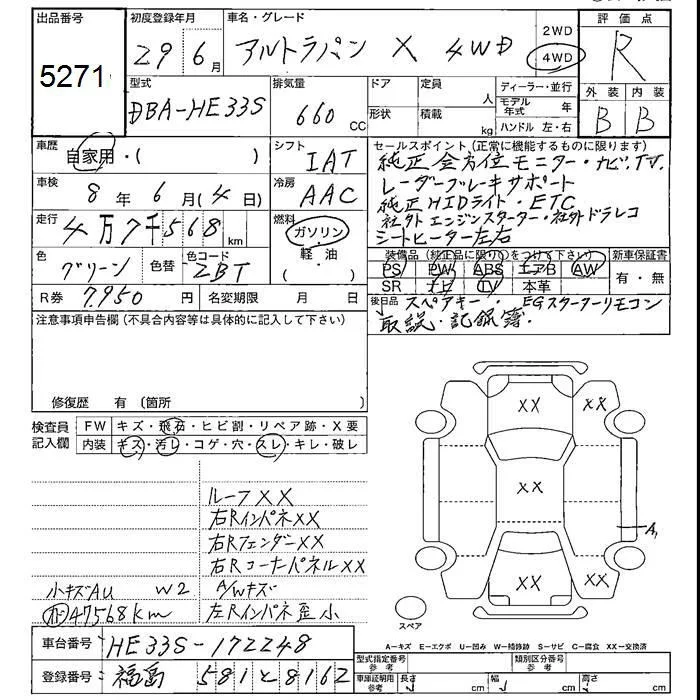 出品番号 初度登録年月 車名・グレード 評価点
5271 29 6月 アルトラパン X 4WD 2WD 4WD R
型式 排気量 ドア 定員 人 ディーラー・並行 外装 内装
DBA-HE33S 660 CC 形状 積載 kg モデル年式 年 ハンドル 左・右 B B
車歴 自家用・( ) シフト IAT セールスポイント(正常に機能するものに限ります)
純正全方位モニター・ナビ.TV.
車検 8年 6月(4日) 冷房 AAC レーダーブレーキサポート
純正HIDライト・ETC
走行 4万7千568km 燃料 ガソリン 社外エンジンスターター・社外ドラレコ
軽・油 ( ) シートヒーター左右
色 グリーン 色替 色コード ZBT 装備品(純正品に限り○をつけて下さい) 新車保証書
PS PW ABS エアB AW 有・無
R券 7.950円 名変期限 月 日 SR ナビ TV 本革
注意事項申告欄(不具合内容等は具体的に記入して下さい) 後日品 スペアキー・ EGスターターリモコン
取説・記録簿.
修復歴 有 (箇所
検査員 FW キズ・飛石・ヒビ割・リペア跡・X要
記入欄 内装 キズ・汚レ・コゲ・穴・スレ・キレ・破レ
XX XX
XX
A1
XX XX
ルーフXX
右RインパネXX
右RフェンダーXX
右RコーナーパネルXX
小キズAU W2 A/Wキズ
47568km 左Rインパネ歪小
スペア
A-キズ E-エクボ U-凹み W-補修跡 S-サビ C-腐食 XX-交換済
車台番号 HE33S-172248 型式指定番号 参考 類別区分番号 参考
登録番号 福島 581 と 8162 車庫証明用 参考 長さ cm 幅 cm 高さ cm